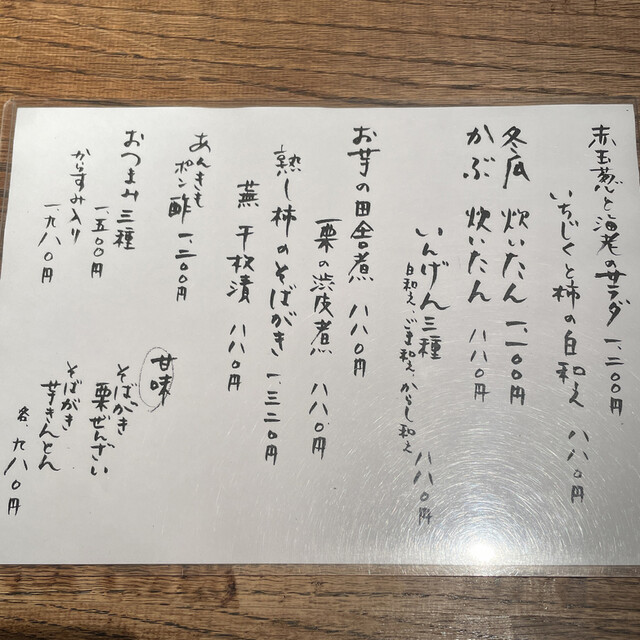 赤玉葱と海老のサラダ 一、二〇〇円
いちじくと柿の白和え 八八〇円
冬瓜 炊いたん 一、一〇〇円
かぶ 炊いたん 八八〇円
いんげん三種
白和え、ごま和え、からし和え 八八〇円
お芋の田舎煮 八八〇円
栗の渋皮煮 八八〇円
熟し柿のそばがき 一、三二〇円
蕪 千枚漬 八八〇円
あんきも
ポン酢 一、二〇〇円
おつまみ三種
一、五〇〇円
からすみ入り
一九八〇円
甘味
そばがき
栗ぜんざい
そばがき
芋きんとん
各 九八〇円